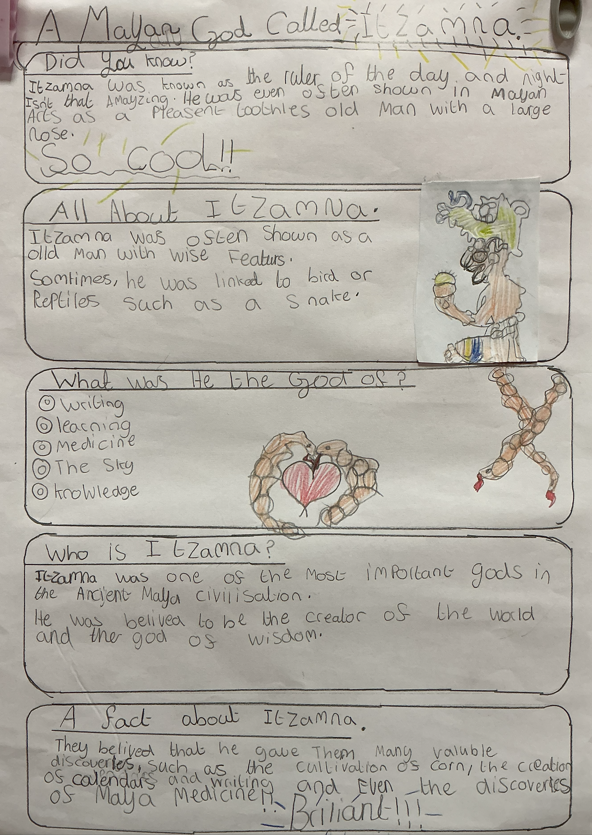 A Mayan God Called Itzamna.
Did you know?
Itzamna was known as the ruler of the day and night
Isn't that Amayzing. He was even often shown in Mayan
Arts as a Pleasent toothles old Man with a large
nose.
So cool!!
All About Itzamna.
Itzamna was often shown as a
old Man with wise Featurs.
Somtimes, he was linked to bird or
Reptiles such as a snake.
What was He the God of?
Writing
learning
Medicine
The Sky
knowledge
Who is Itzamna?
Itzamna was one of the Most important gods in
the Ancient Maya civilisation.
He was belived to be the creator of the world
and the god of wisdom.
A fact about Itzamna.
They belived that he gave Them Many valuble
discoveries, such as the cultivation of corn, the creation
of calendars and writing and Even the discoveries
of Maya Medicine!!
Briliant!!!